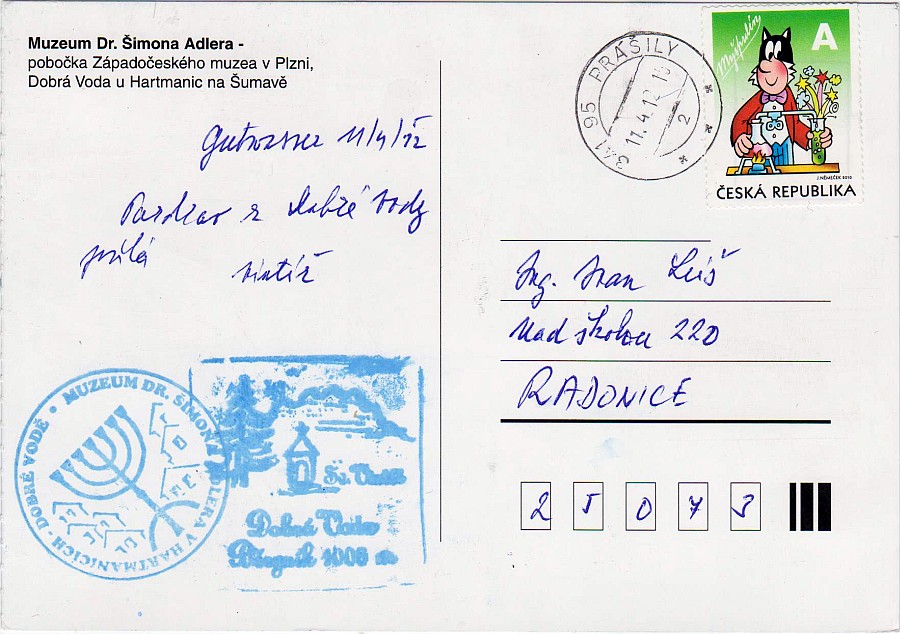 Muzeum Dr. Šimona Adlera -
pobočka Západočeského muzea v Plzni,
Dobrá Voda u Hartmanic na Šumavě
11/4/12
Pozdrav z Dobré Vody
posílá
341 95 PRÁŠILY
11.4.12
2
Myšpulín
A
J.NĚMEČEK 2010
ČESKÁ REPUBLIKA
Ing. Ivan Leiš
Nad školou 220
RADONICE
25073
MUZEUM DR. ŠIMONA ADLERA V HARTMANICÍCH - DOBRÉ VODĚ
Sv. Vintíř
Dobrá Voda
Březník 1006 m